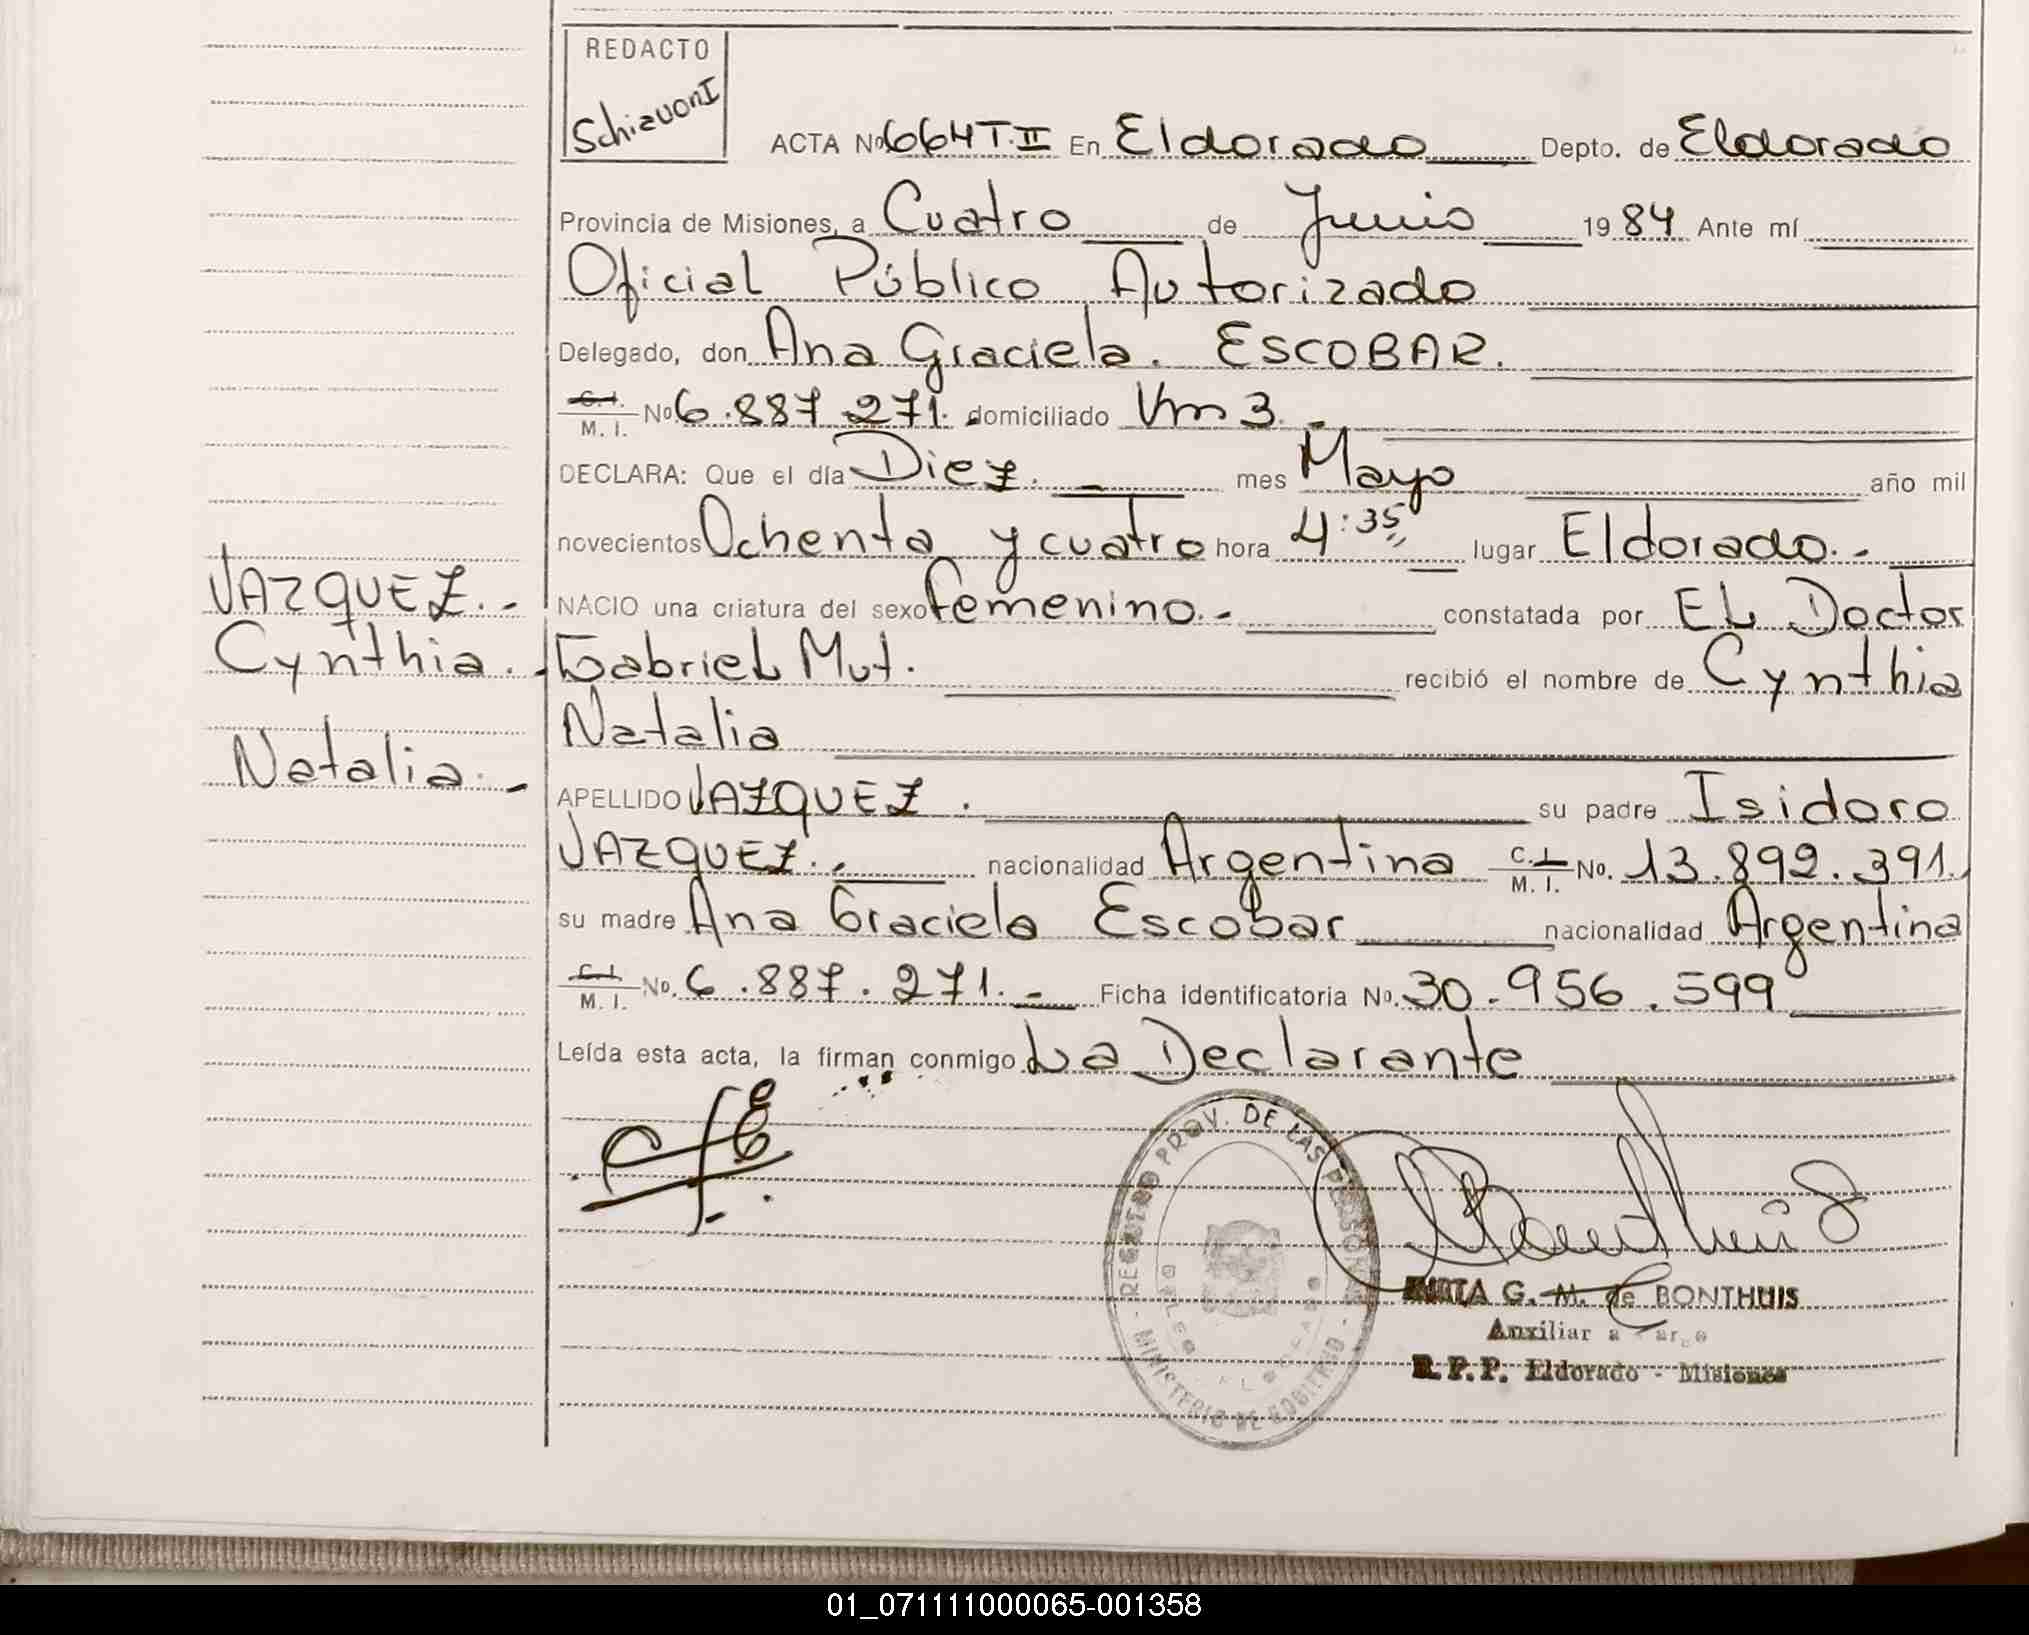 REDACTO
Schiavoni
ACTA Nº 664 T.II En Eldorado Depto. de Eldorado
Provincia de Misiones, a Cuatro de Junio 1984 Ante mí
Oficial Público Autorizado
Delegado, don Ana Graciela. ESCOBAR.
C.I. M. I. Nº 6.887.271. domiciliado Km 3. -
DECLARA: Que el día Diez. - mes Mayo año mil
novecientos Ochenta y cuatro hora 4:35,, lugar Eldorado.-
VAZQUEZ.-
NACIO una criatura del sexo femenino.- constatada por EL Doctor
Cynthia.-
Gabriel Mut. recibió el nombre de Cynthia
Natalia
Natalia.-
APELLIDO VAZQUEZ. su padre Isidoro
VAZQUEZ.- nacionalidad Argentina C.I. M. I. No. 13.892.391.
su madre Ana Graciela Escobar nacionalidad Argentina
C.I. M. I. No. 6.887.271.- Ficha identificatoria Nº. 30.956.599
Leída esta acta, la firman conmigo La Declarante
REGISTRO PROV. DE LAS PERSONAS
- MINISTERIO DE GOBIERNO -
G. M. de BONTHUIS
Auxiliar a Cargo
R.P.P. Eldorado - Misiones
01_071111000065-001358